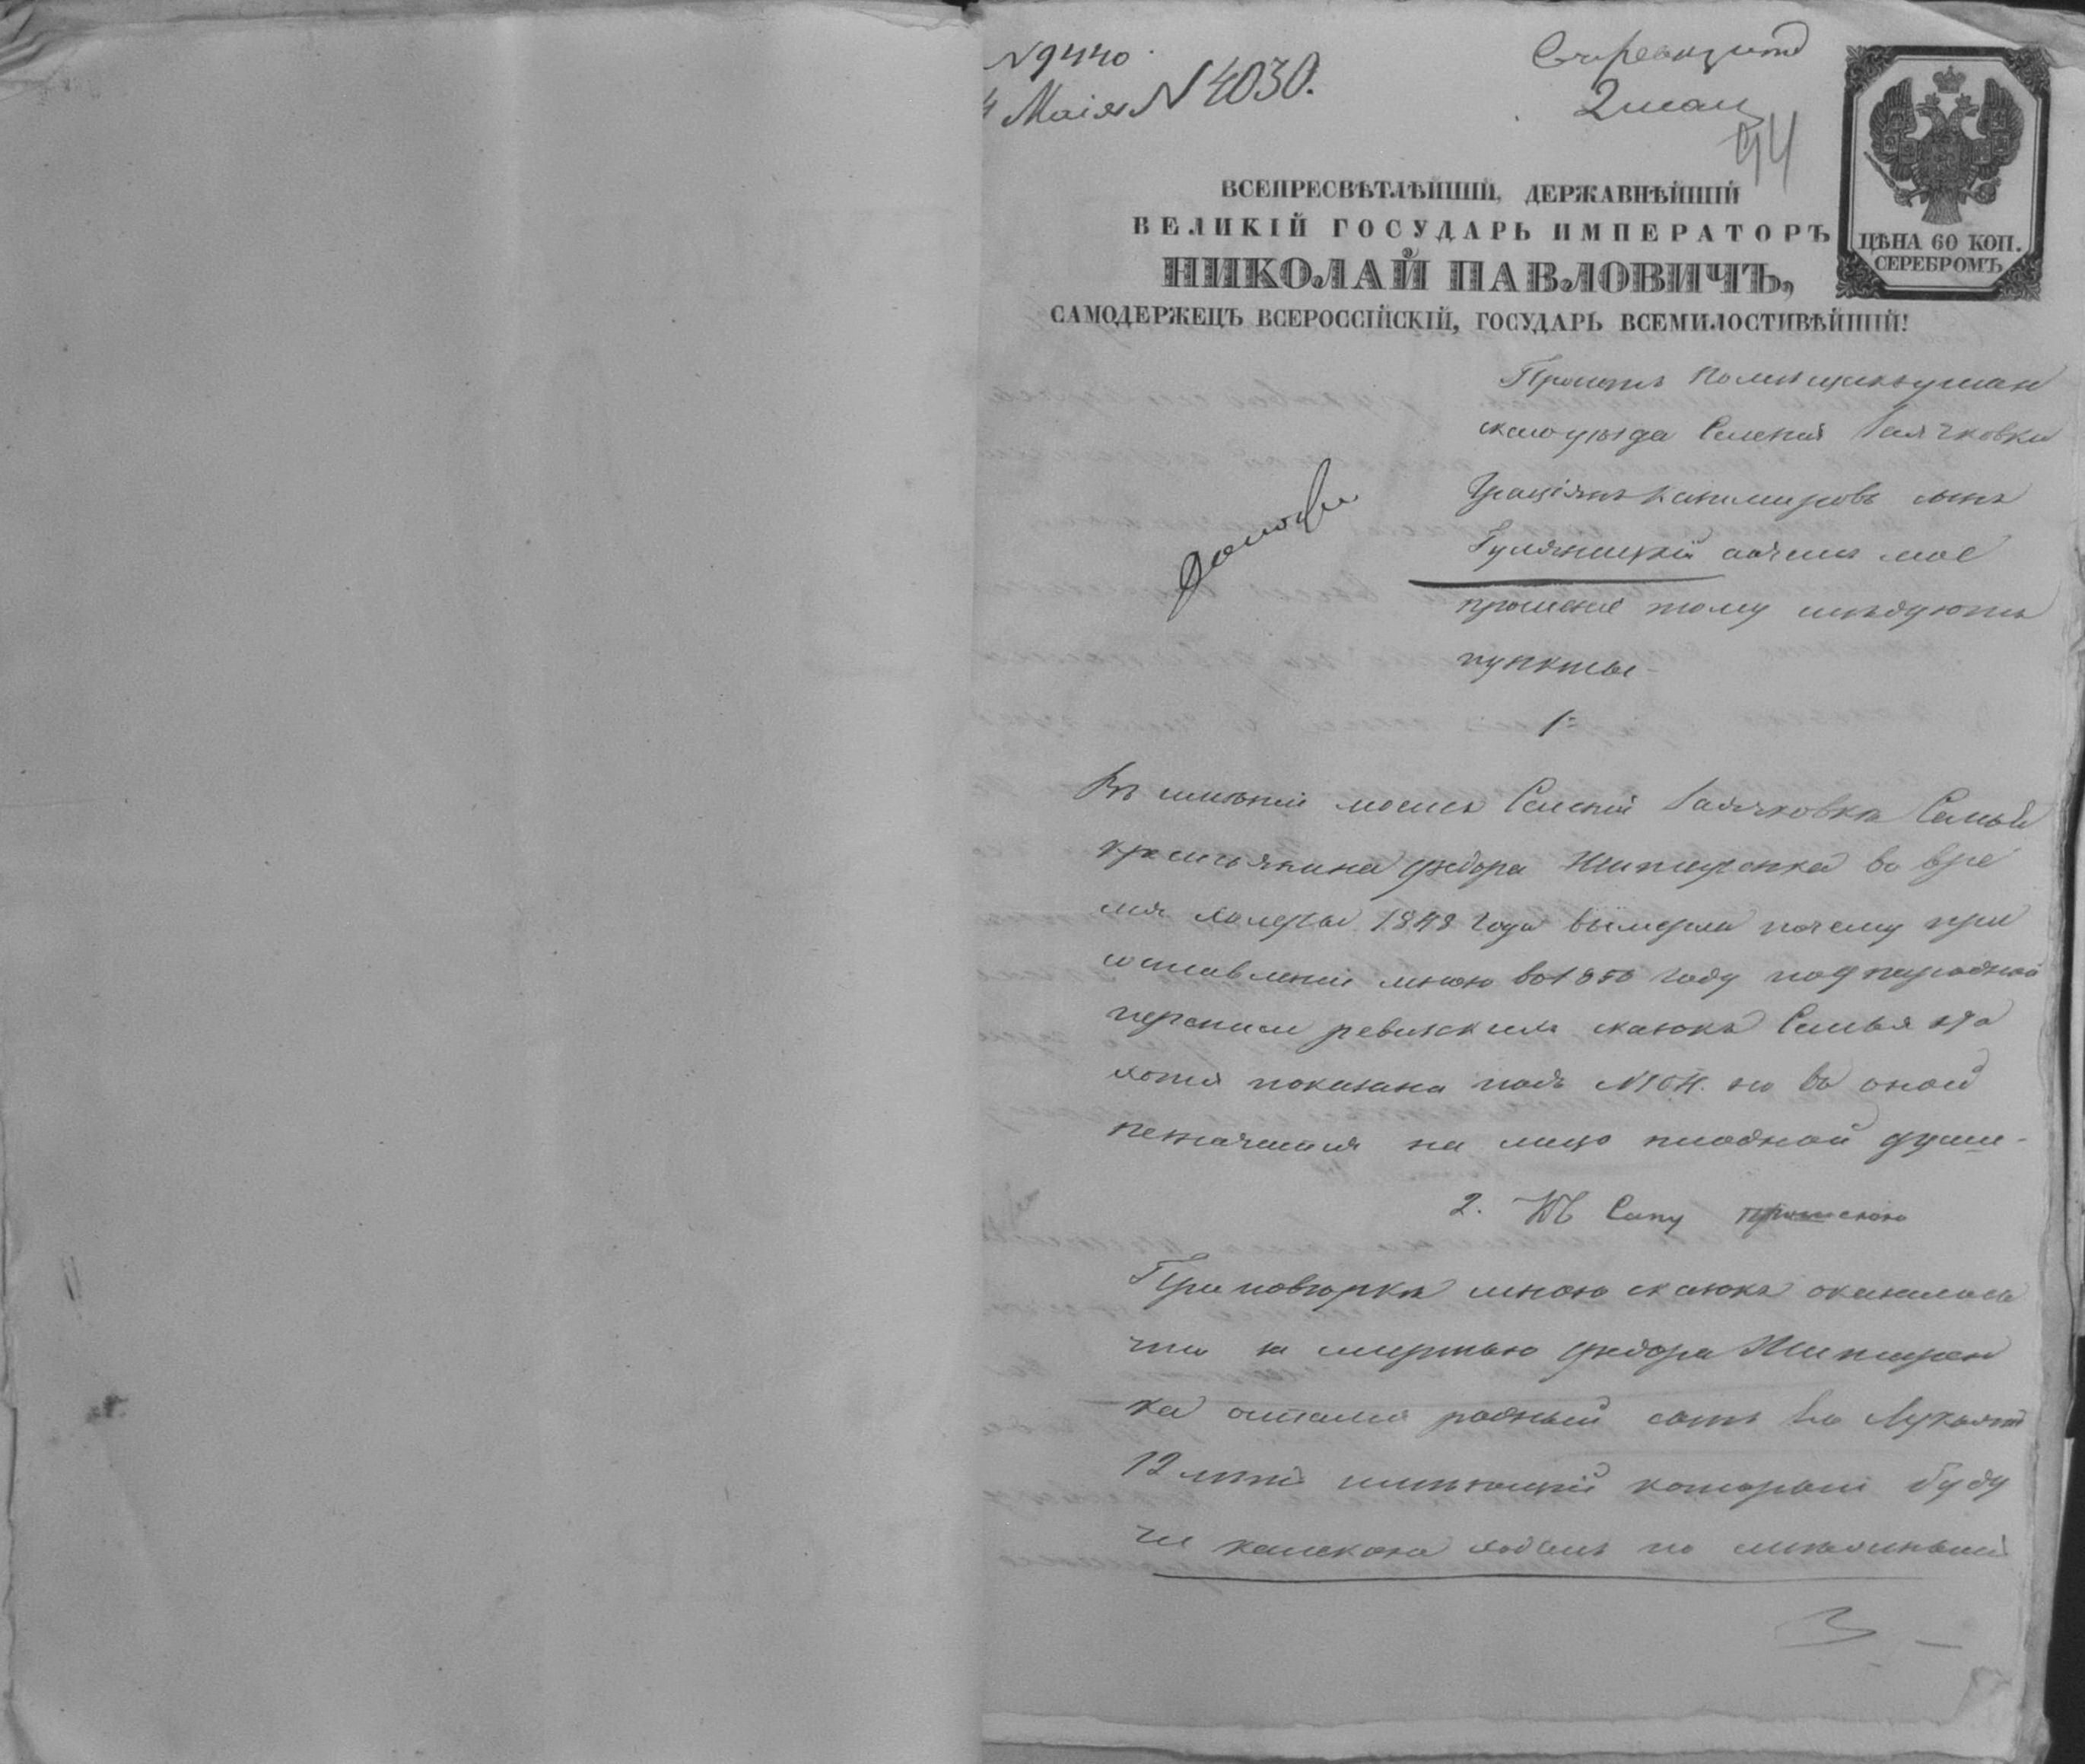 N 9440
4 Маія N 4030.
2 стол
94
ВСЕПРЕСВѢТЛѢЙШІЙ, ДЕРЖАВНѢЙШІЙ
ВЕЛИКІЙ ГОСУДАРЬ ИМПЕРАТОРЪ
НИКОЛАЙ ПАВЛОВИЧЪ,
САМОДЕРЖЕЦЪ ВСЕРОССІЙСКІЙ, ГОСУДАРЬ ВСЕМИЛОСТИВѢЙШІЙ!
ЦѢНА 60 КОП.
СЕРЕБРОМЪ
Проситъ Помѣщикъ уман
скаго уѣзда Селенія
Граціянъ Казимировъ сынъ
Гуляницкій о чемъ мое
прошеніе тому слѣдуютъ
пункты
1
Въ имѣніи моемъ Селеніи Семья
крестьянина Федора во вре
мя холеры 1848 года вымерла почему при
составленіи мною во 1850 году подъ народной
переписи ревизскихъ сказокъ Семья эта
хотя показана подъ N но во оной
незначится на лицо ниодной души
2. Къ Сему прошенію
При повѣркѣ мною сказокъ оказалось
что за смертью Федора
ка остался родный сынъ его
12 лѣтъ имѣющій который буду
чи калекою ходилъ по
3